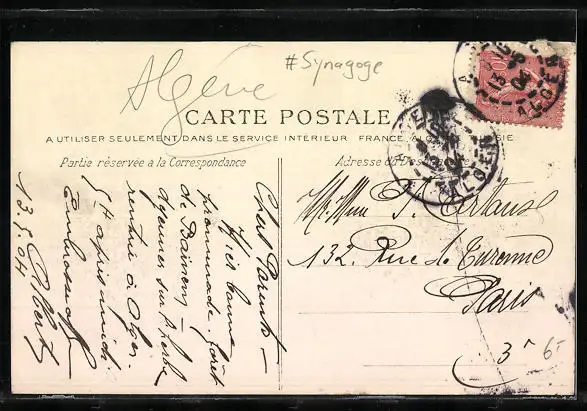 Algérie
#Synagoge
CARTE POSTALE
A UTILISER SEULEMENT DANS LE SERVICE INTERIEUR FRANCE, ALGERIE, TUNISIE
Partie réservée à la Correspondance
Adresse du Destinataire
ALGER
13
04
Chers Parents
promenade forêt
de Bainem
déjeuner sur l'herbe
rentrée à Alger
5h après midi
Albert
13.5.04
Mr. Mme
132, Rue de Turenne
Paris
3e
6-